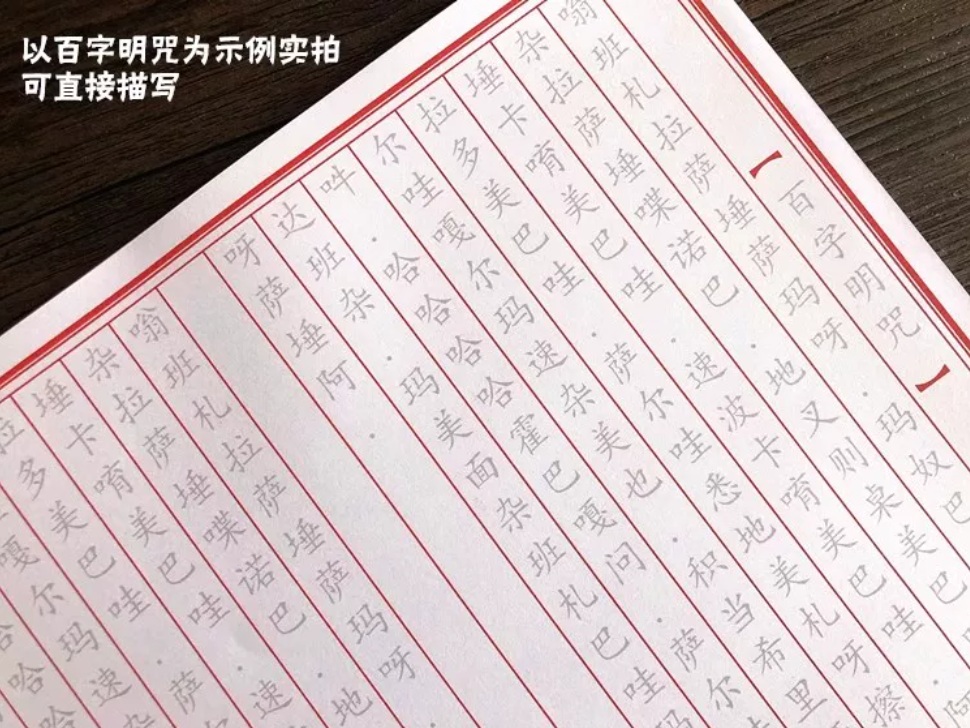 以百字明咒为示例实拍
可直接描写
【百字明咒】
嗡班札拉萨埵萨玛呀.玛奴巴
杂拉萨埵喋诺巴.地叉则桌美巴
埵卡唷美巴哇.速波卡唷美巴哇.阿
拉多美巴哇.萨尔哇悉地美札呀擦
尔哇嘎尔玛速杂美也.积当希里
吽.哈哈哈哈霍巴嘎问.萨尔
达班杂.玛美面杂班札巴哇
呀萨埵阿.
嗡班札拉萨埵萨玛呀
杂拉萨埵喋诺巴.地
埵卡唷美巴哇.速
拉多美巴哇.萨
嘎尔玛速杂
哈哈